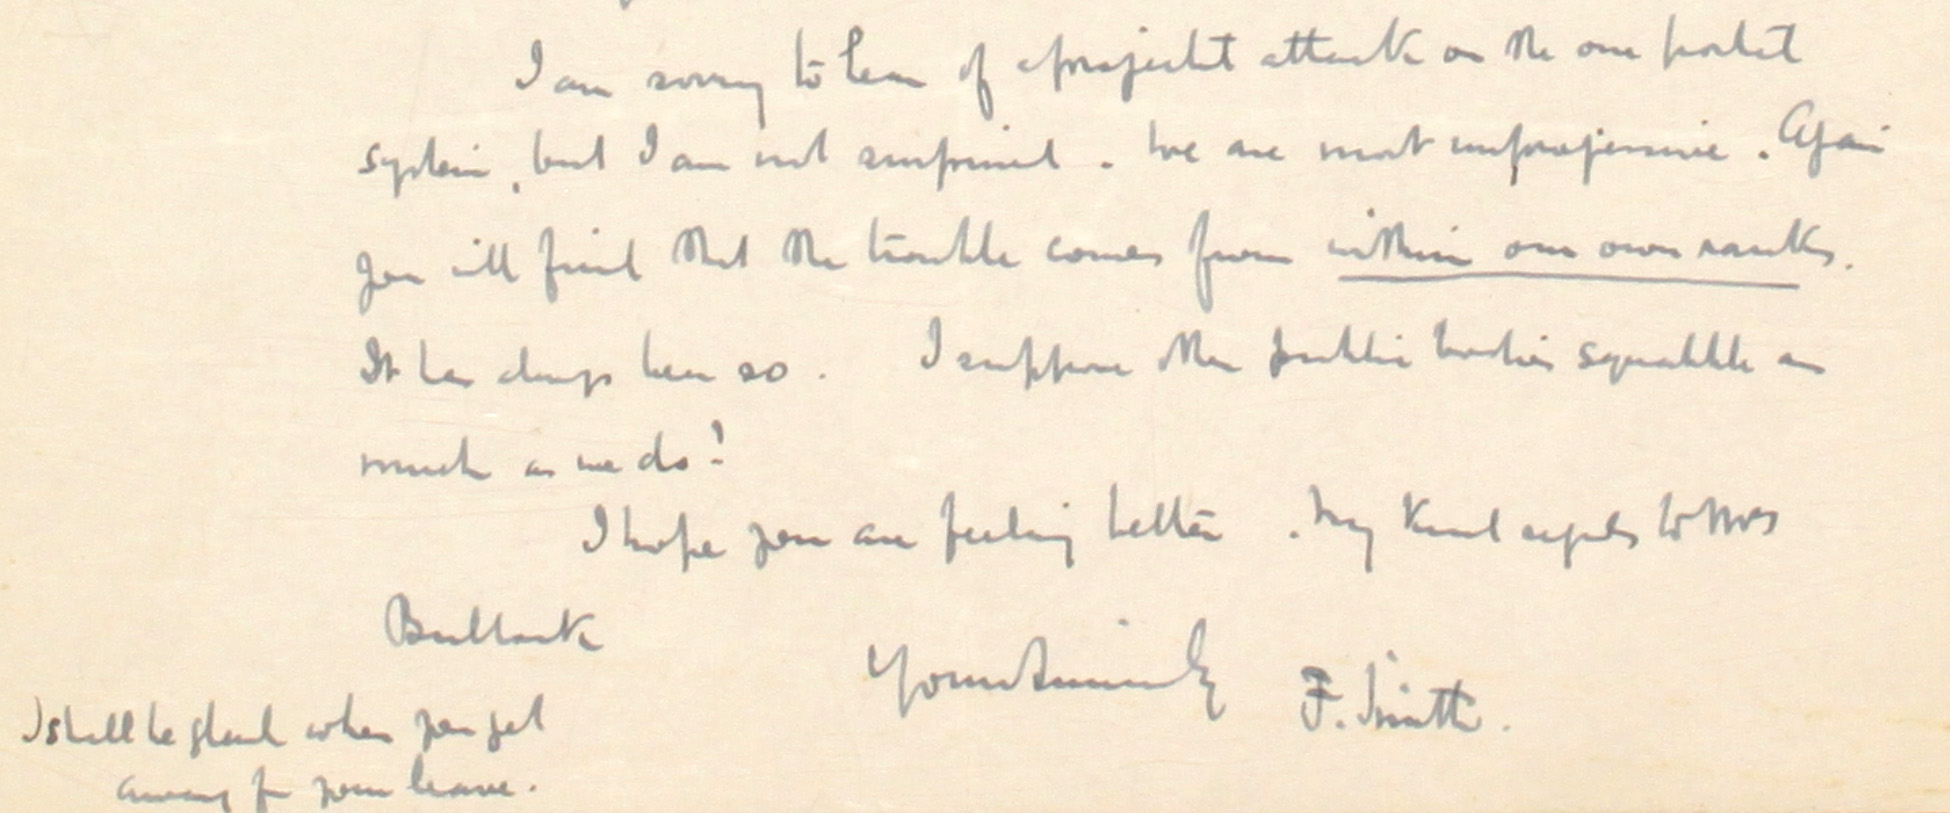 I am sorry to hear of a projected attack on the one portal
system, but I am not surprised. We are most unprogressive. Again
you will find that the trouble comes from within our own ranks.
It has always been so. I suppose other public bodies squabble as
much as we do!
I hope you are feeling better. My kind regards to Mrs
Bullock
Yours sincerely F. Smith.
I shall be glad when you get
away for your leave.